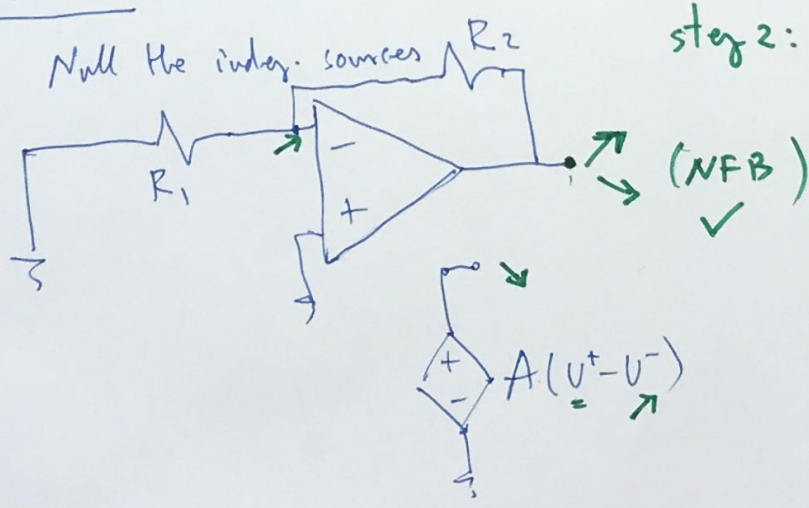 Null the indep. sources
R2
step 2:
R1
−
+
(NFB)
✓
+
−
A(U⁺-U⁻)